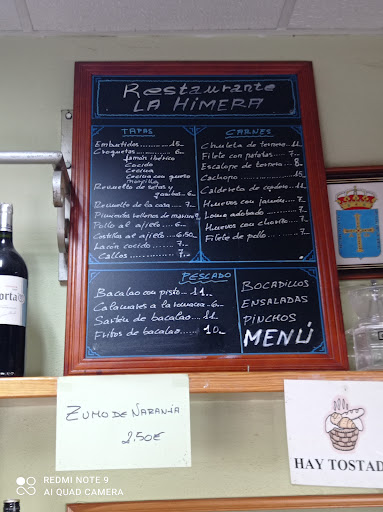 Restaurante
LA HIMERA
TAPAS
Embutidos 15
Croquetas 6
Jamón ibérico
Cocido
Cecina
Cecina con queso
Revuelto de setas y
gambas 6
Revuelto de la casa 7
Pimientos rellenos de marisco
Pollo al ajillo 6
Costillas al ajillo 6.50
Lacón cocido 7
Callos 7
CARNES
Chuleta de ternera 11
Filete con patatas 7
Escalope de ternera 8
Cachopo 15
Caldereta de cordero 11
Huevos con jamón 7
Lomo adobado 7
Huevos con chorizo 7
Filete de pollo 7
PESCADO
Bacalao con pisto 11
Calamares a la romana 6
Sartén de bacalao 11
Fritos de bacalao 10
BOCADILLOS
ENSALADAS
PINCHOS
MENÚ
orta
ZUMO DE NARANJA
2.50€
HAY TOSTAD
REDMI NOTE 9
AI QUAD CAMERA